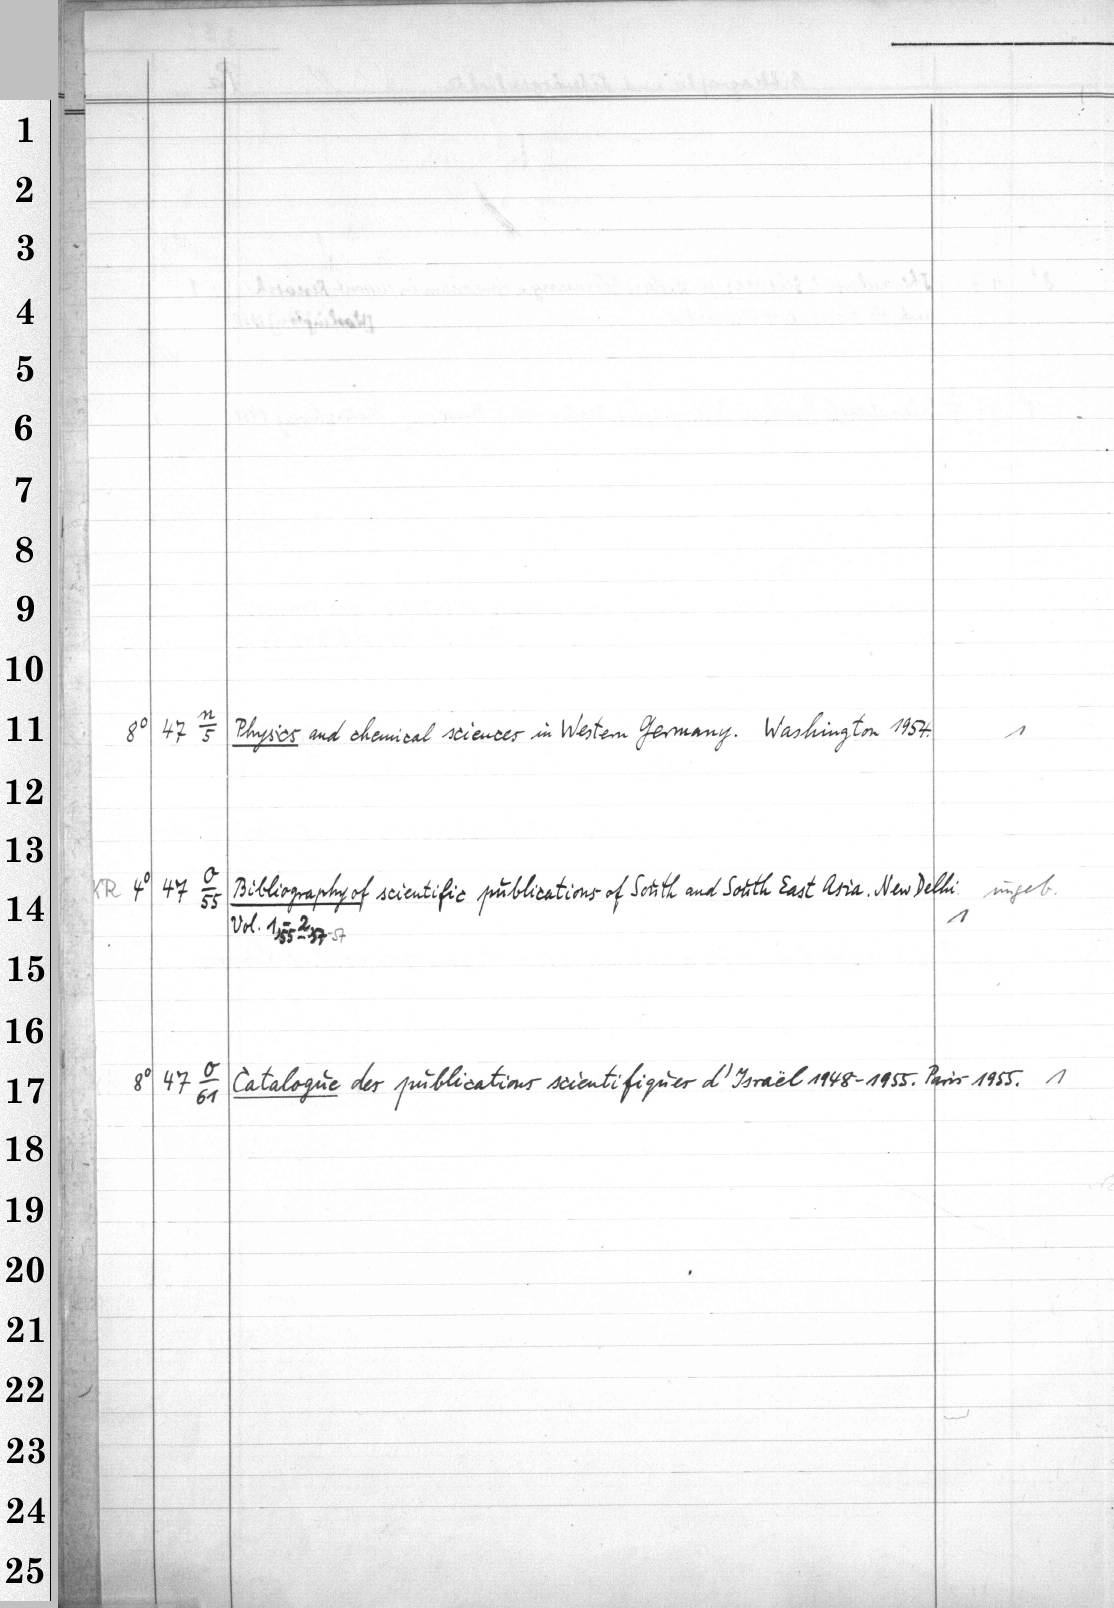 1
2
3
4
5
6
7
8
9
10
11
8° 47 n/5 Physics and chemical sciences in Western Germany. Washington 1954. 1
12
13
14
KR 4° 47 σ/55 Bibliography of scientific publications of South and South East Asia. New Delhi ungeb.
Vol. 1,55-2,57 1
15
16
17
8° 47 σ/61 Catalogue des publications scientifiques d'Israël 1948-1955. Paris 1955. 1
18
19
20
21
22
23
24
25